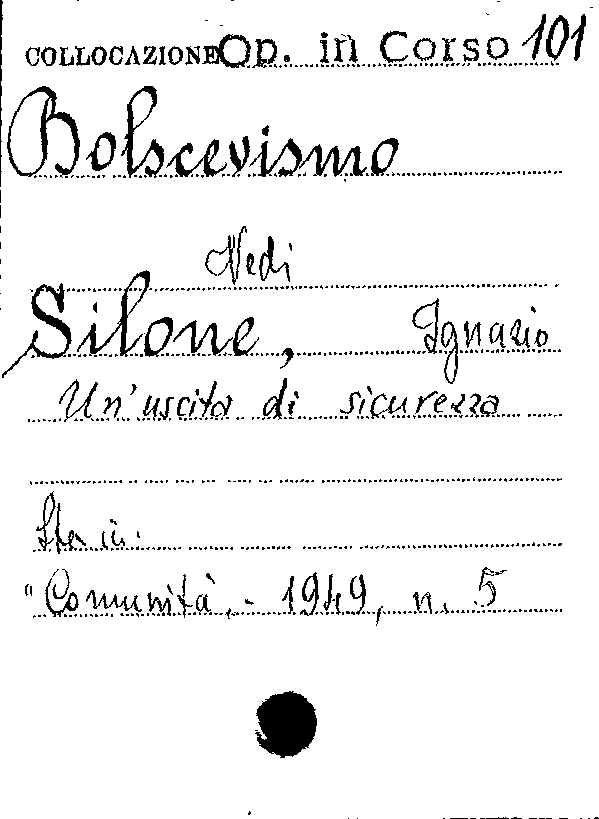 COLLOCAZIONE Op. in Corso 101
Bolscevismo
Vedi
Silone, Ignazio
Un'uscita di sicurezza
Sta in:
"Comunità,- 1949, n. 5